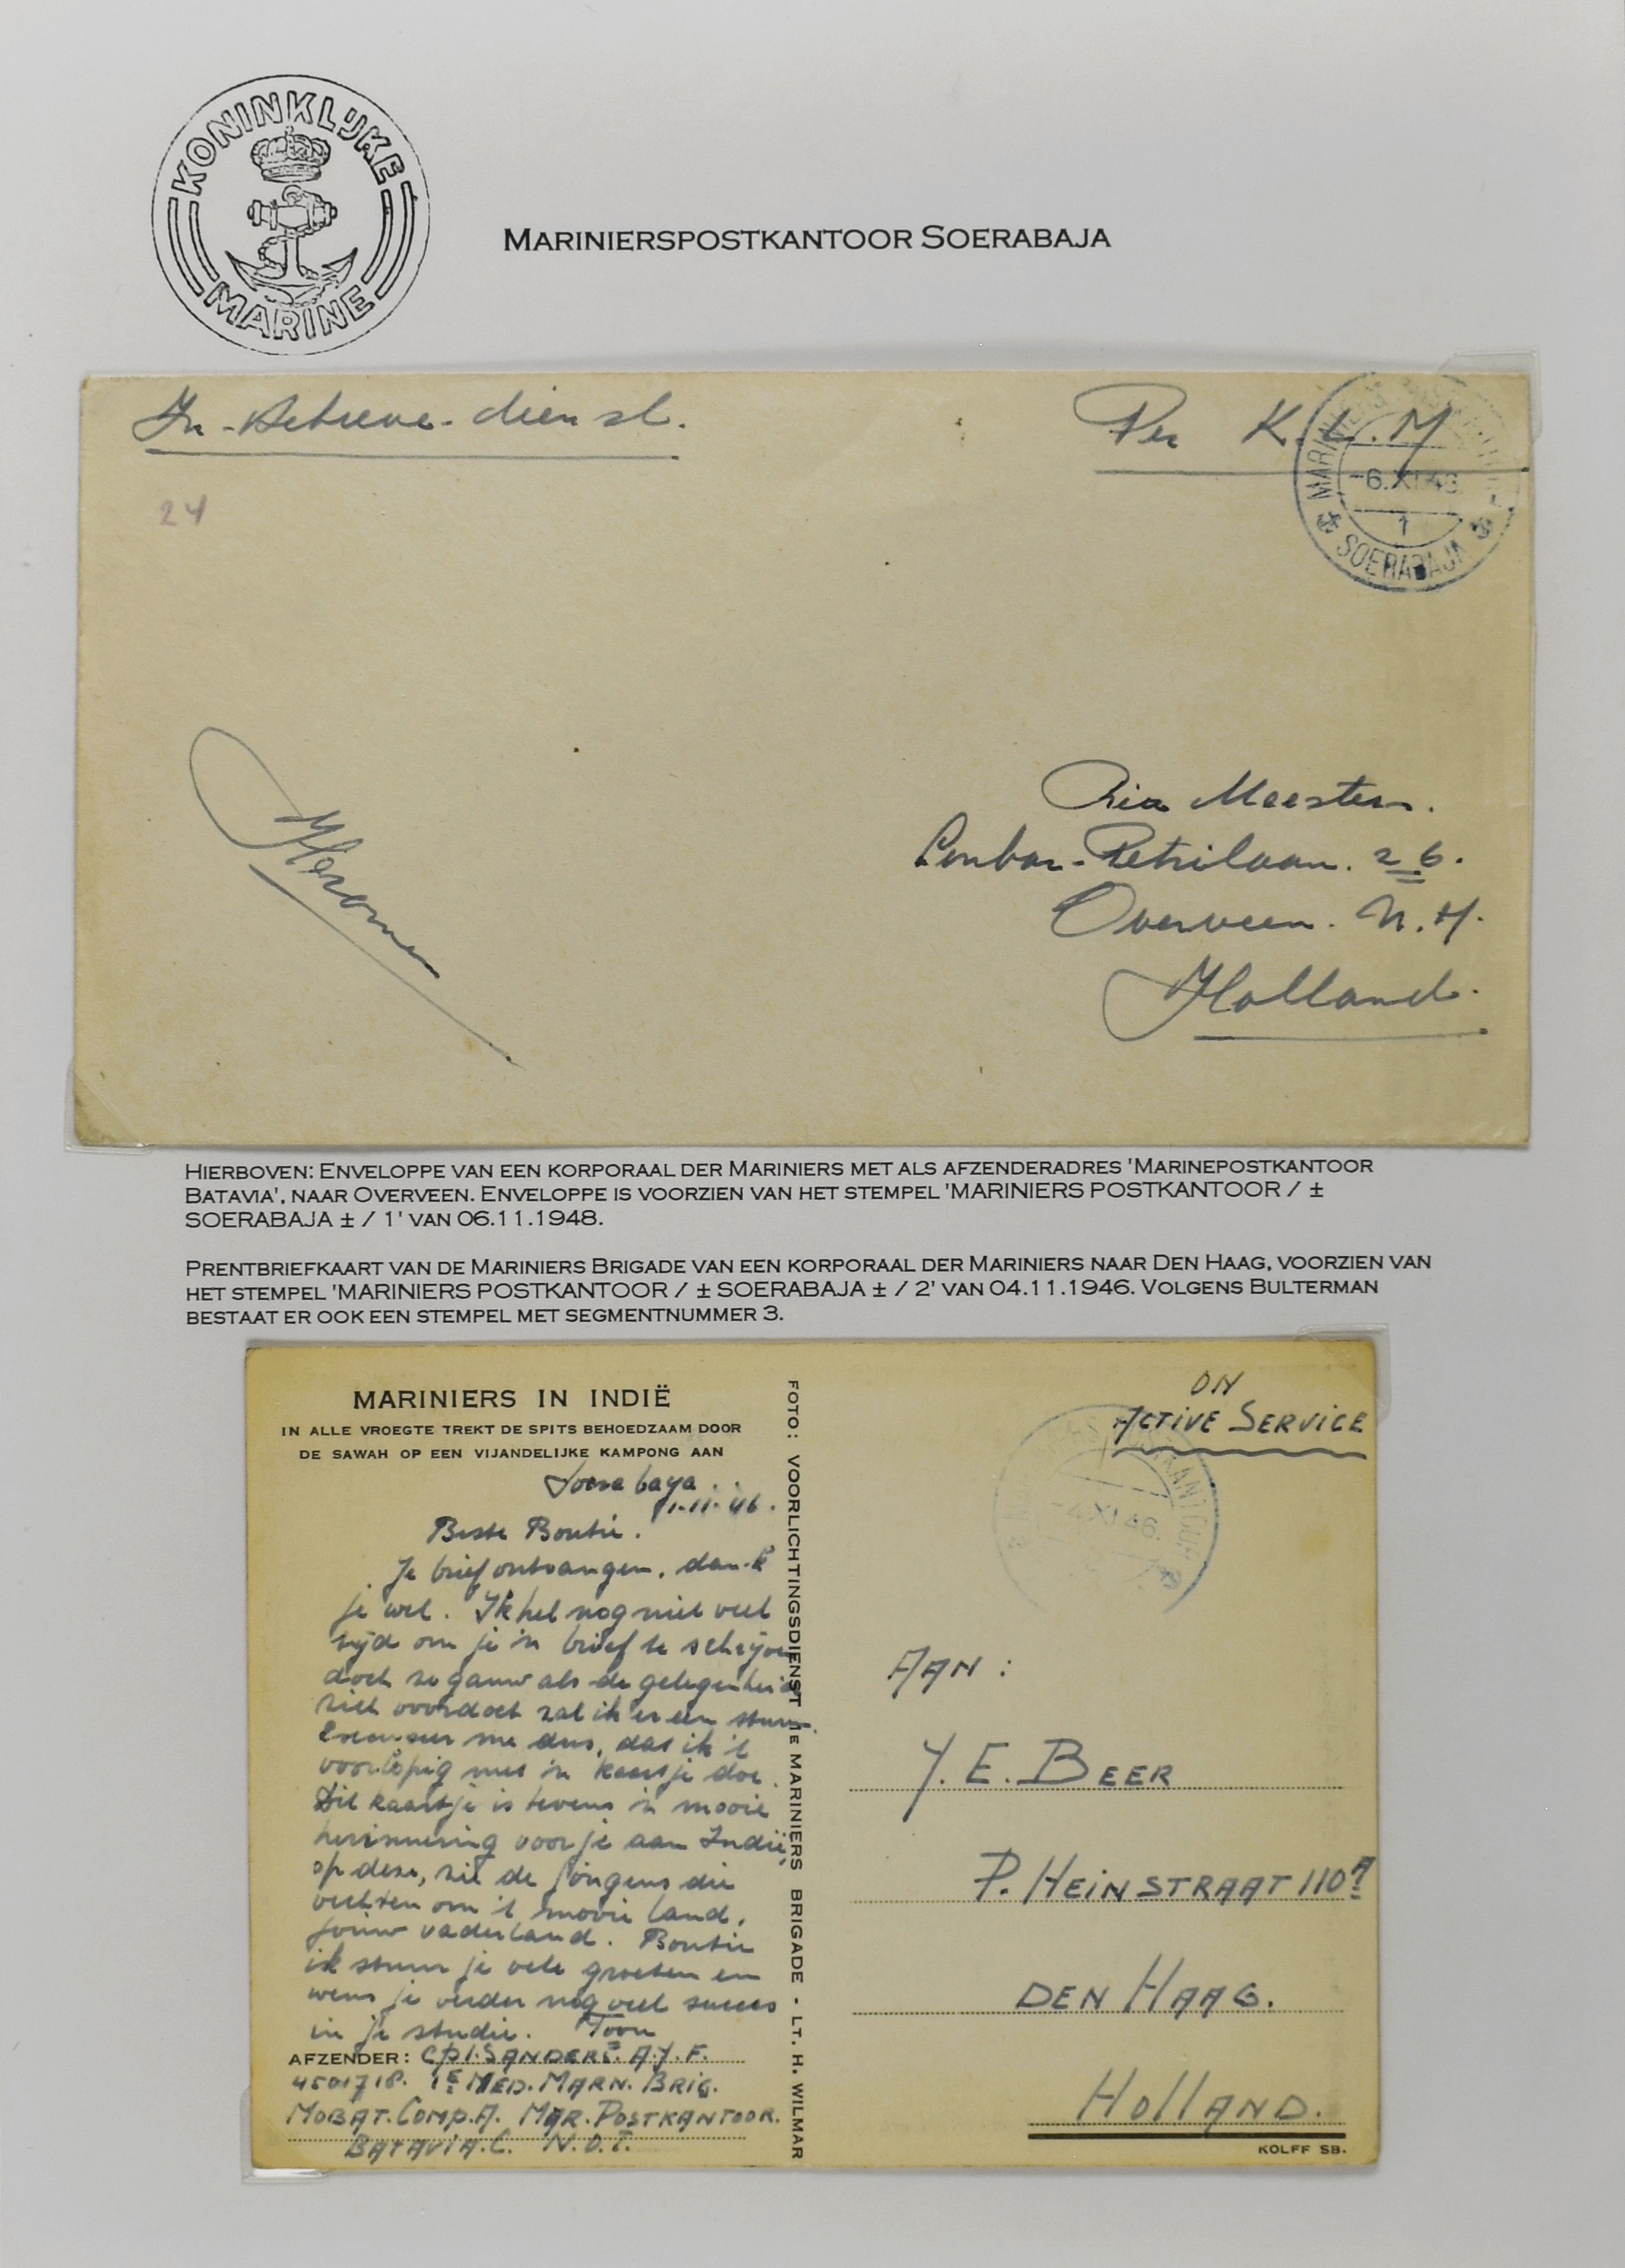 KONINKLIJKE
MARINE
MARINIERSPOSTKANTOOR SOERABAJA
In-Actieve-dienst.
Per K.L.M
MARINIERS
-6.XI.48
1
SOERABAJA
24
Ria Meesters.
26.
Overveen. N.H.
Holland.
HIERBOVEN: ENVELOPPE VAN EEN KORPORAAL DER MARINIERS MET ALS AFZENDERADRES 'MARINEPOSTKANTOOR
BATAVIA', NAAR OVERVEEN. ENVELOPPE IS VOORZIEN VAN HET STEMPEL 'MARINIERS POSTKANTOOR / ±
SOERABAJA ± / 1' VAN 06.11.1948.
PRENTBRIEFKAART VAN DE MARINIERS BRIGADE VAN EEN KORPORAAL DER MARINIERS NAAR DEN HAAG, VOORZIEN VAN
HET STEMPEL 'MARINIERS POSTKANTOOR / ± SOERABAJA ± / 2' VAN 04.11.1946. VOLGENS BULTERMAN
BESTAAT ER OOK EEN STEMPEL MET SEGMENTNUMMER 3.
MARINIERS IN INDIË
IN ALLE VROEGTE TREKT DE SPITS BEHOEDZAAM DOOR
DE SAWAH OP EEN VIJANDELIJKE KAMPONG AAN
Soerabaya.
1-11-46.
Beste Boutie.
Je brief ontvangen, dank
je wel. Ik heb nog niet veel
tijd om je 'n brief te schrijven
doch zo gauw als de gelegenheid
zich voordoet zal ik er een sturen.
Excuseer me dus, dat ik 't
voorlopig met 'n kaartje doe.
Dit kaartje is tevens 'n mooie
herinnering voor je aan Indië,
op deze, zie de jongens die
vechten om 't mooie land,
jouw vaderland. Boutie
ik stuur je vele groeten en
wens je verder nog veel succes
in je studie. Toon
AFZENDER: CPL.SANDERS. A.J.F.
4501718. 1E MED. MARN. BRIG.
MOBAT. COMP. A. MAR. POSTKANTOOR.
BATAVIA. C. N.O.I.
FOTO: VOORLICHTINGSDIENST 1E MARINIERS BRIGADE - LT. H. WILMAR
ON
ACTIVE SERVICE
-4.XI.46.
AAN:
J. E. BEER
P. HEINSTRAAT 110A
DEN HAAG.
HOLLAND.
KOLFF SB.